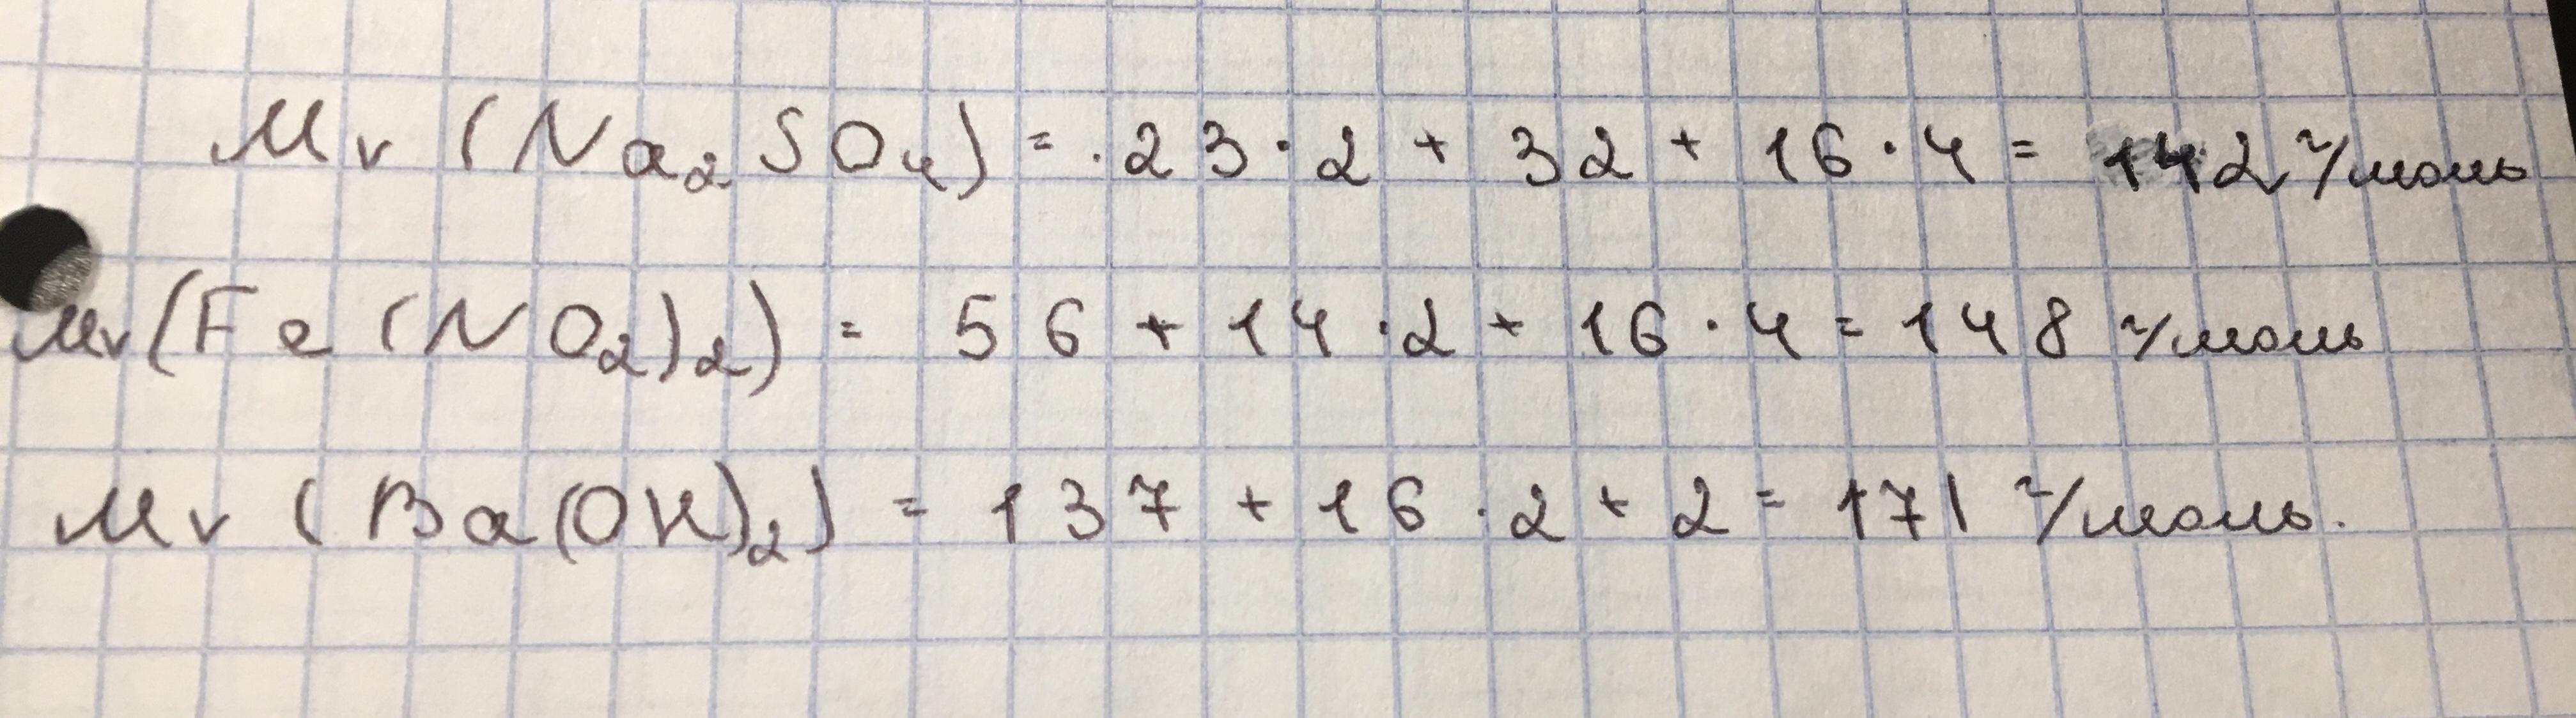 Mr (Na₂SO₄) = 23·2 + 32 + 16·4 = 142 г/моль
Mr(Fe(NO₂)₂) = 56 + 14·2 + 16·4 = 148 г/моль
Mr (Ba(OH)₂) = 137 + 16·2 + 2 = 171 г/моль.